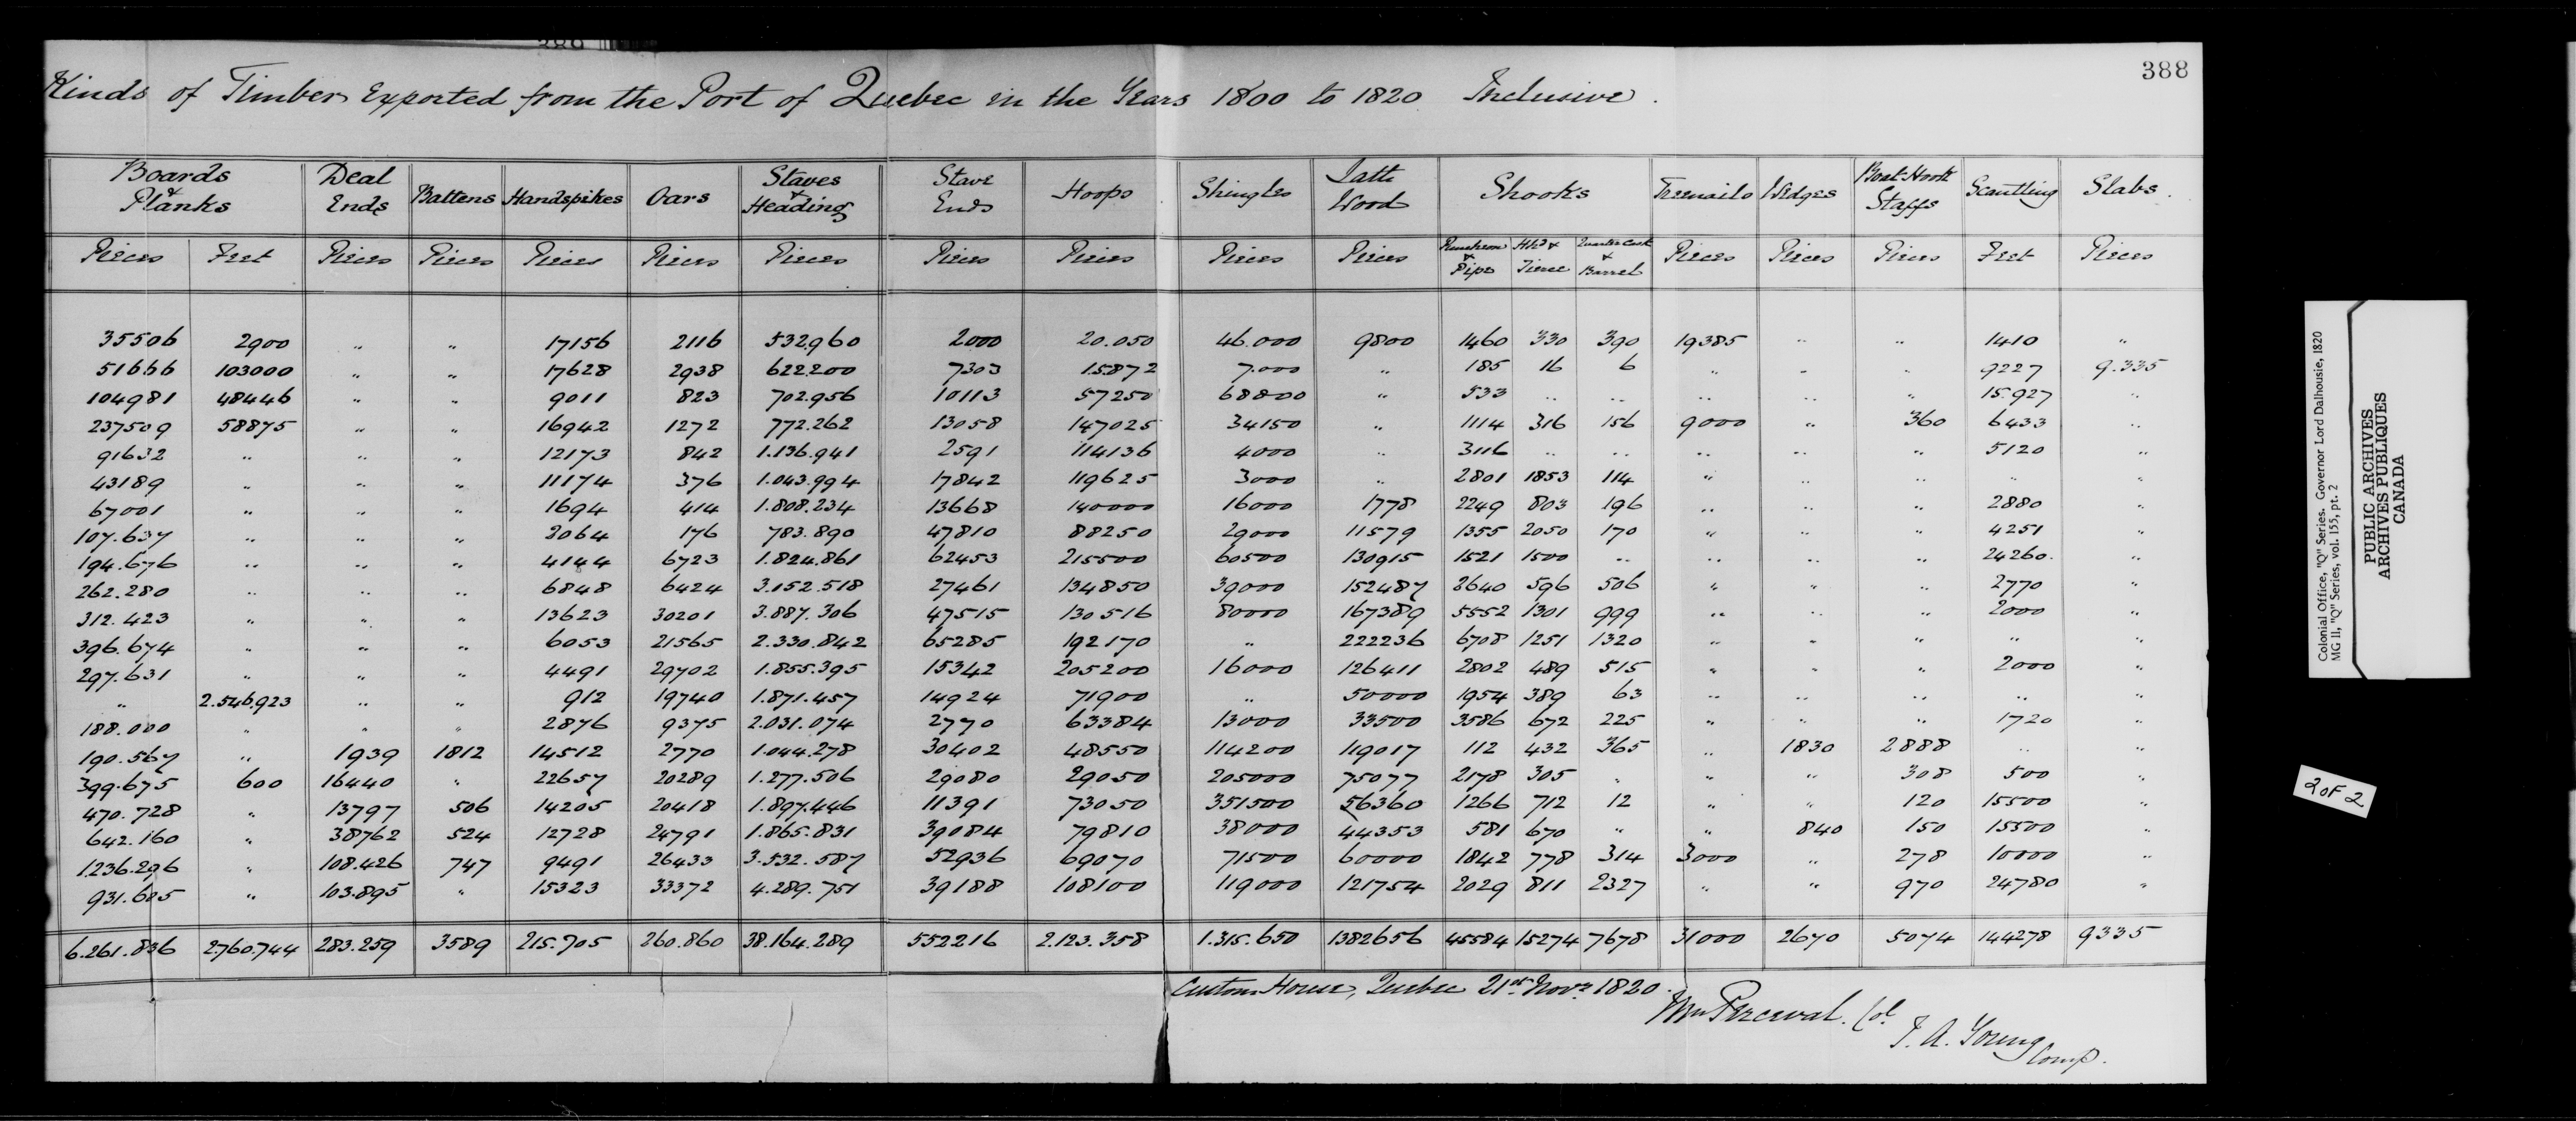 388
Kinds of Timber Exported from the Port of Quebec in the Years 1800 to 1820 Inclusive.
Boards & Planks | Deal Ends | Battens | Handspikes | Oars | Staves & Heading | Stave Ends | Hoops | Shingles | Lath Wood | Shooks | Treenails | Wedges | Boat-Hook Staffs | Scantling | Slabs.
Pieces | Feet | Pieces | Pieces | Pieces | Pieces | Pieces | Pieces | Pieces | Pieces | Pieces | Puncheon & Pipe | Hhd & Tierce | Quarter Cask & Barrel | Pieces | Pieces | Pieces | Feet | Pieces
35506 | 2900 | " | " | 17156 | 2116 | 532960 | 2000 | 20.050 | 46.000 | 9800 | 1460 | 330 | 390 | 19385 | " | " | 1410 | "
51666 | 103000 | " | " | 17628 | 2938 | 622200 | 7303 | 15872 | 7.000 | " | 185 | 16 | 6 | " | " | " | 9227 | 9.335
104981 | 48446 | " | " | 9011 | 823 | 702.956 | 10113 | 57250 | 68800 | " | 533 | " | " | " | " | " | 15.927 | "
237509 | 58875 | " | " | 16942 | 1272 | 772.262 | 13058 | 147025 | 34150 | " | 1114 | 316 | 156 | 9000 | " | 360 | 6433 | "
91632 | " | " | " | 12173 | 842 | 1.136.941 | 2591 | 114136 | 4000 | " | 3116 | " | " | " | " | " | 5120 | "
43189 | " | " | " | 11174 | 376 | 1.043.994 | 17842 | 119625 | 3000 | " | 2801 | 1853 | 114 | " | " | " | " | "
67001 | " | " | " | 1694 | 414 | 1.808.234 | 13668 | 140000 | 16000 | 1778 | 2249 | 803 | 196 | " | " | " | 2880 | "
107.637 | " | " | " | 3064 | 176 | 783.890 | 47810 | 88250 | 29000 | 11579 | 1355 | 2050 | 170 | " | " | " | 4251 | "
194.676 | " | " | " | 4144 | 6723 | 1.824.861 | 62453 | 215500 | 60500 | 130915 | 1521 | 1500 | " | " | " | " | 24260. | "
262.280 | " | " | " | 6848 | 6424 | 3.152.518 | 27461 | 134850 | 39000 | 152487 | 2640 | 596 | 506 | " | " | " | 2770 | "
312.423 | " | " | " | 13623 | 30201 | 3.887.306 | 47515 | 130516 | 80000 | 167389 | 5552 | 1301 | 999 | " | " | " | 2000 | "
396.674 | " | " | " | 6053 | 21565 | 2.330.842 | 65285 | 192170 | " | 222236 | 6708 | 1251 | 1320 | " | " | " | " | "
297.631 | " | " | " | 4491 | 29702 | 1.855.395 | 15342 | 205200 | 16000 | 126411 | 2802 | 489 | 515 | " | " | " | 2000 | "
" | 2.546.923 | " | " | 912 | 19740 | 1.871.457 | 14924 | 71900 | " | 50000 | 1954 | 389 | 63 | " | " | " | " | "
188.000 | " | " | " | 2876 | 9375 | 2.031.074 | 2770 | 63384 | 13000 | 33500 | 3586 | 672 | 225 | " | " | " | 1720 | "
190.567 | " | 1939 | 1812 | 14512 | 2770 | 1.044.278 | 30402 | 48550 | 114200 | 119017 | 112 | 432 | 365 | " | 1830 | 2888 | " | "
399.675 | 600 | 16440 | " | 22657 | 20289 | 1.277.506 | 29080 | 29050 | 205000 | 75077 | 2178 | 305 | " | " | " | 308 | 500 | "
470.728 | " | 13797 | 506 | 14205 | 20418 | 1.897.446 | 11391 | 73050 | 351500 | 56360 | 1266 | 712 | 12 | " | " | 120 | 15500 | "
642.160 | " | 38762 | 524 | 12728 | 24791 | 1.865.831 | 39084 | 79810 | 38000 | 44353 | 581 | 670 | " | " | 840 | 150 | 15500 | "
1236.296 | " | 108.426 | 747 | 9491 | 26433 | 3.532.587 | 52936 | 69070 | 71500 | 60000 | 1842 | 778 | 314 | 3000 | " | 278 | 10000 | "
931.605 | " | 103.895 | " | 15323 | 33372 | 4.289.751 | 39188 | 108100 | 119000 | 121754 | 2029 | 811 | 2327 | " | " | 970 | 24780 | "
6.261.836 | 2.760.744 | 283.259 | 3589 | 215.705 | 260.860 | 38.164.289 | 552216 | 2.123.358 | 1.315.650 | 1382656 | 45584 | 15274 | 7678 | 31000 | 2670 | 5074 | 144278 | 9335
Custom House, Quebec 21st Novr 1820.
Wm Percival. Col.
T. A. Young Comp.
Colonial Office, "Q" Series. Governor Lord Dalhousie, 1820
MG 11, "Q" Series, vol. 155, pt. 2
PUBLIC ARCHIVES
ARCHIVES PUBLIQUES
CANADA
2 OF 2